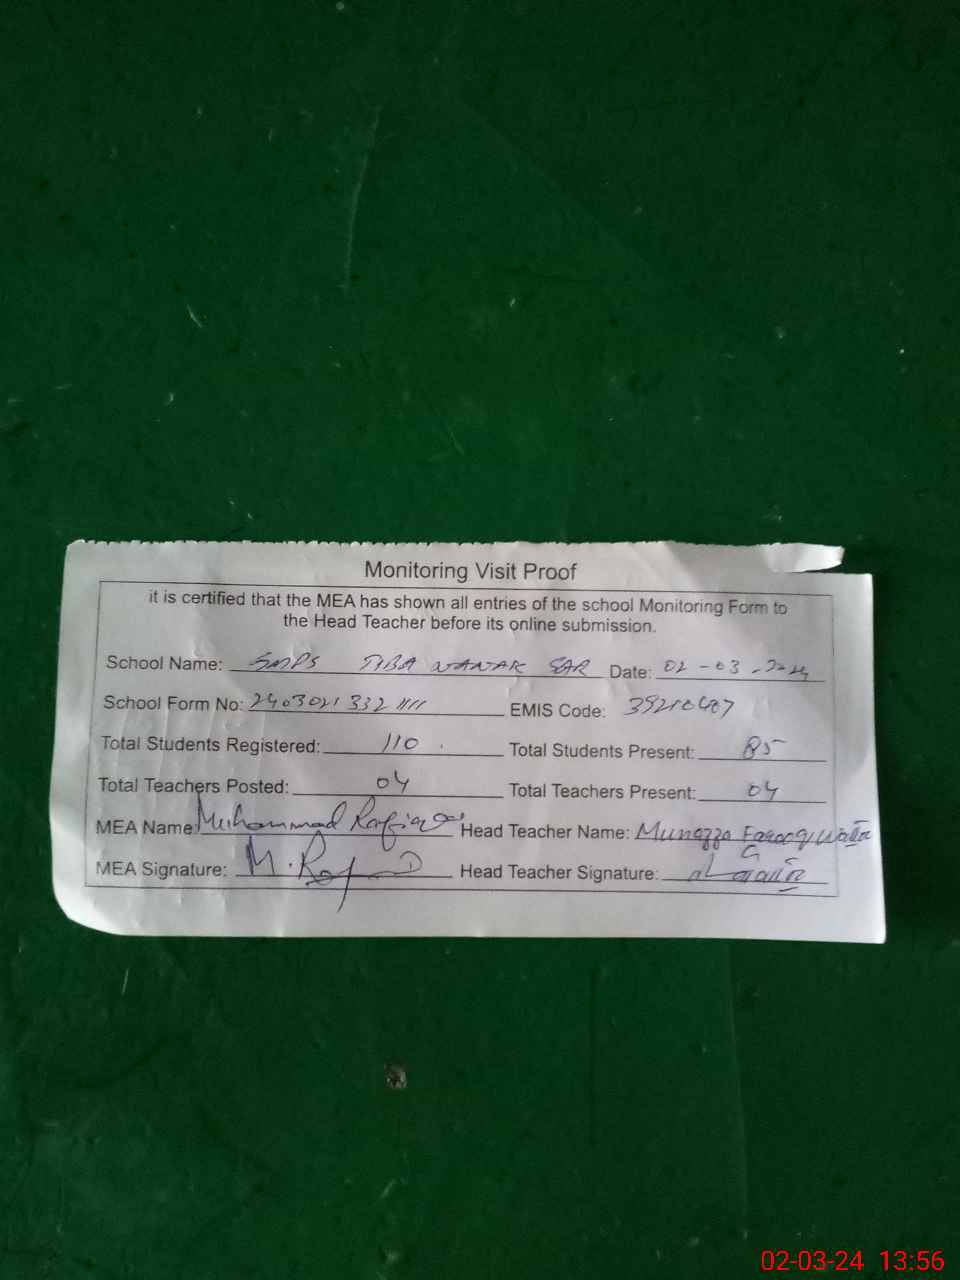 Monitoring Visit Proof
it is certified that the MEA has shown all entries of the school Monitoring Form to
the Head Teacher before its online submission.
School Name: SMPS TIBA NANAK SAR Date: 02-03-2024
School Form No: 2403021332 1111 EMIS Code:
Total Students Registered: 110 Total Students Present: 85
Total Teachers Posted: 04 Total Teachers Present: 04
MEA Name: Muhammad Rafiq Head Teacher Name: Munazza Farooq
MEA Signature: M. Raf Head Teacher Signature:
02-03-24 13:56